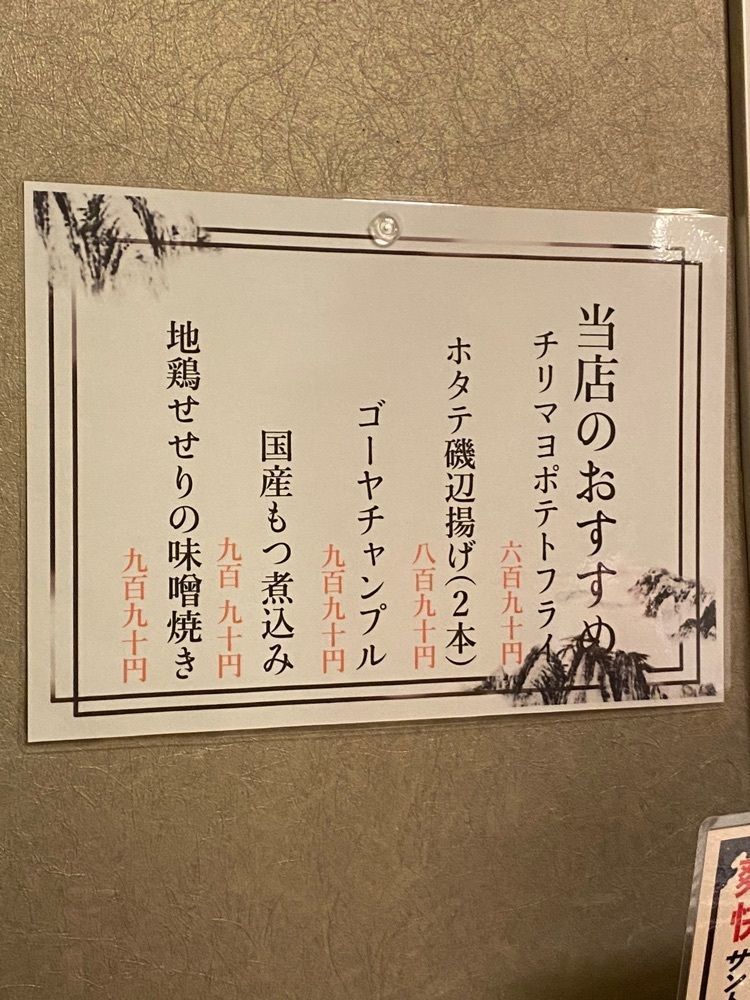 当店のおすすめ
チリマヨポテトフライ
六百九十円
ホタテ磯辺揚げ(2本)
八百九十円
ゴーヤチャンプル
九百九十円
国産もつ煮込み
九百 九十円
地鶏せせりの味噌焼き
九百九十円
爽快
サント